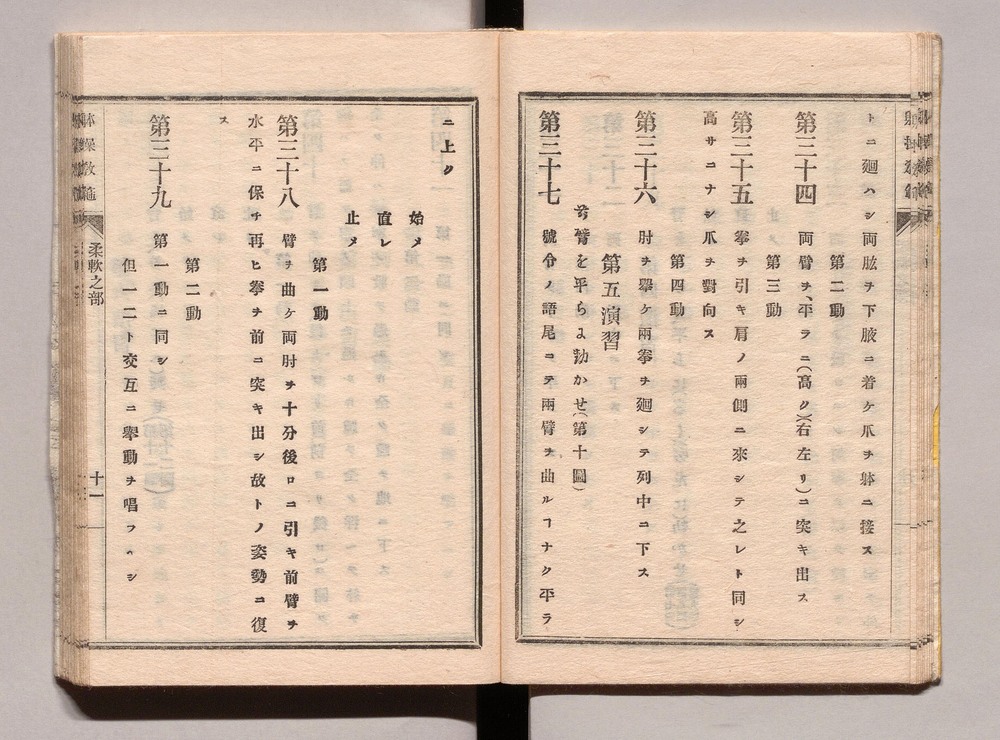 トニ廻ハシ両肱ヲ下腋ニ着ケ爪ヲ躰ニ接ス
第二動
第三十四 両臂ヲ、平ラニ(高ク)(右左リ)ニ突キ出ス
第三動
第三十五 拳ヲ引キ肩ノ兩側ニ來シテ之レト同シ
高サニナシ爪ヲ對向ス
第四動
第三十六 肘ヲ擧ケ兩拳ヲ廻シテ列中ニ下ス
第五演習
臂を平らよ動かせ(第十圖)
第三十七 號令ノ語尾ニテ兩臂ヲ曲ルヿナク平ラ
ニ上ク
始メ
直レ
止メ
第一動
第三十八 臂ヲ曲ケ両肘ヲ十分後ロニ引キ前臂ヲ
水平ニ保チ再ヒ拳ヲ前ニ突キ出シ故トノ姿勢ニ復
ス
第二動
第三十九 第一動ニ同シ
但一二ト交互ニ擧動ヲ唱フヘシ
柔軟之部
十一